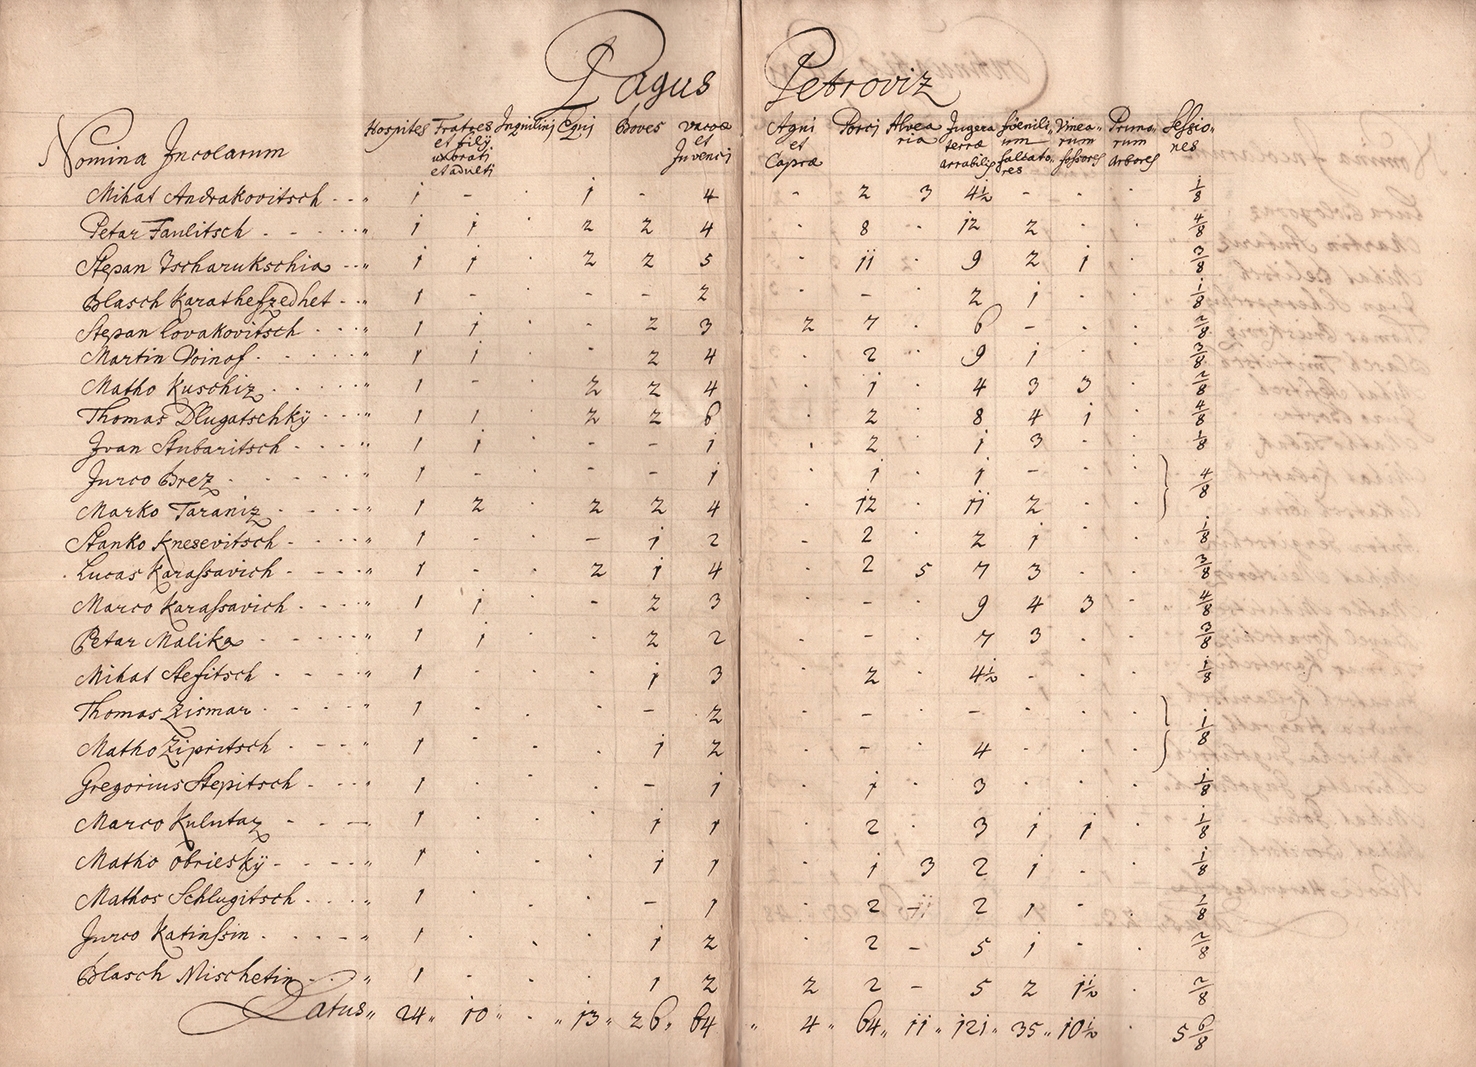 Pagus Petroviz
Nomina Incolarum Hospites Fratres et filij uxorati et adulti Inquilinj Equj Boves Vaccæ et Juvenci Agni et Capræ Porcj Alvearia Jugera terræ arrabilis fœnilium falcatores Vinearum fossores Prunorum arbores Sessiones
Mihat Andrakovitsch 1 - · 1 - 4 · 2 3 4½ · - · 1/8
Petar Faulitsch 1 1 · 2 2 4 · 8 · 12 2 · · 4/8
Stepan Tscharukschia 1 1 · 2 2 5 · 11 · 9 2 1 · 3/8
Blasch Karathefzedhet 1 - · - - 2 · - · 2 1 · · 1/8
Stepan Covakovitsch 1 1 · - 2 3 2 7 · 6 - · · 2/8
Martin Voinof 1 1 · · 2 4 · 2 · 9 1 · · 3/8
Matho Kuschiz 1 - · 2 2 4 · 1 · 4 3 3 · 2/8
Thomas Dlugatschkÿ 1 1 · 2 2 6 · 2 · 8 4 1 · 4/8
Jvan Stubaritsch 1 1 · - - 1 · 2 · 1 3 · · 1/8
Jurco Brez 1 - · - - 1 · 1 · 1 - · · 4/8
Marko Taraniz 1 2 · 2 2 4 · 12 · 11 2 · ·
Stanko Knesevitsch 1 - · - 1 2 - 2 · 2 1 · · 1/8
Lucas Karassavich 1 - · 2 1 4 · 2 5 7 3 · · 3/8
Marco Karassavich 1 1 · - 2 3 · - · 9 4 3 · 4/8
Petar Malika 1 1 · · 2 2 · - · 7 3 · · 3/8
Mihat Stefitsch 1 · · · 1 3 · 2 · 4½ - · · 1/8
Thomas Zismar 1 - · · - 2 · - · - · · · 1/8
Matho Zipritsch 1 · · · 1 2 · - · 4 · · ·
Gregorius Stepitsch 1 · · · - 1 · 1 · 3 · · · 1/8
Marco Kulutaz 1 · · · 1 1 · 2 · 3 1 1 · 1/8
Matho Obrieskÿ 1 · · · 1 1 · 1 3 2 1 · · 1/8
Mathos Schlugitsch 1 · · · - 1 · 2 - 2 1 · · 1/8
Jurco Katinssin 1 · · · 1 2 · 2 - 5 1 · · 2/8
Blasch Mischetin 1 - · · 1 2 2 2 - 5 2 1½ · 2/8
Latus 24 10 · 13 26 64 4 64 11 121 35 10½ · 5 6/8